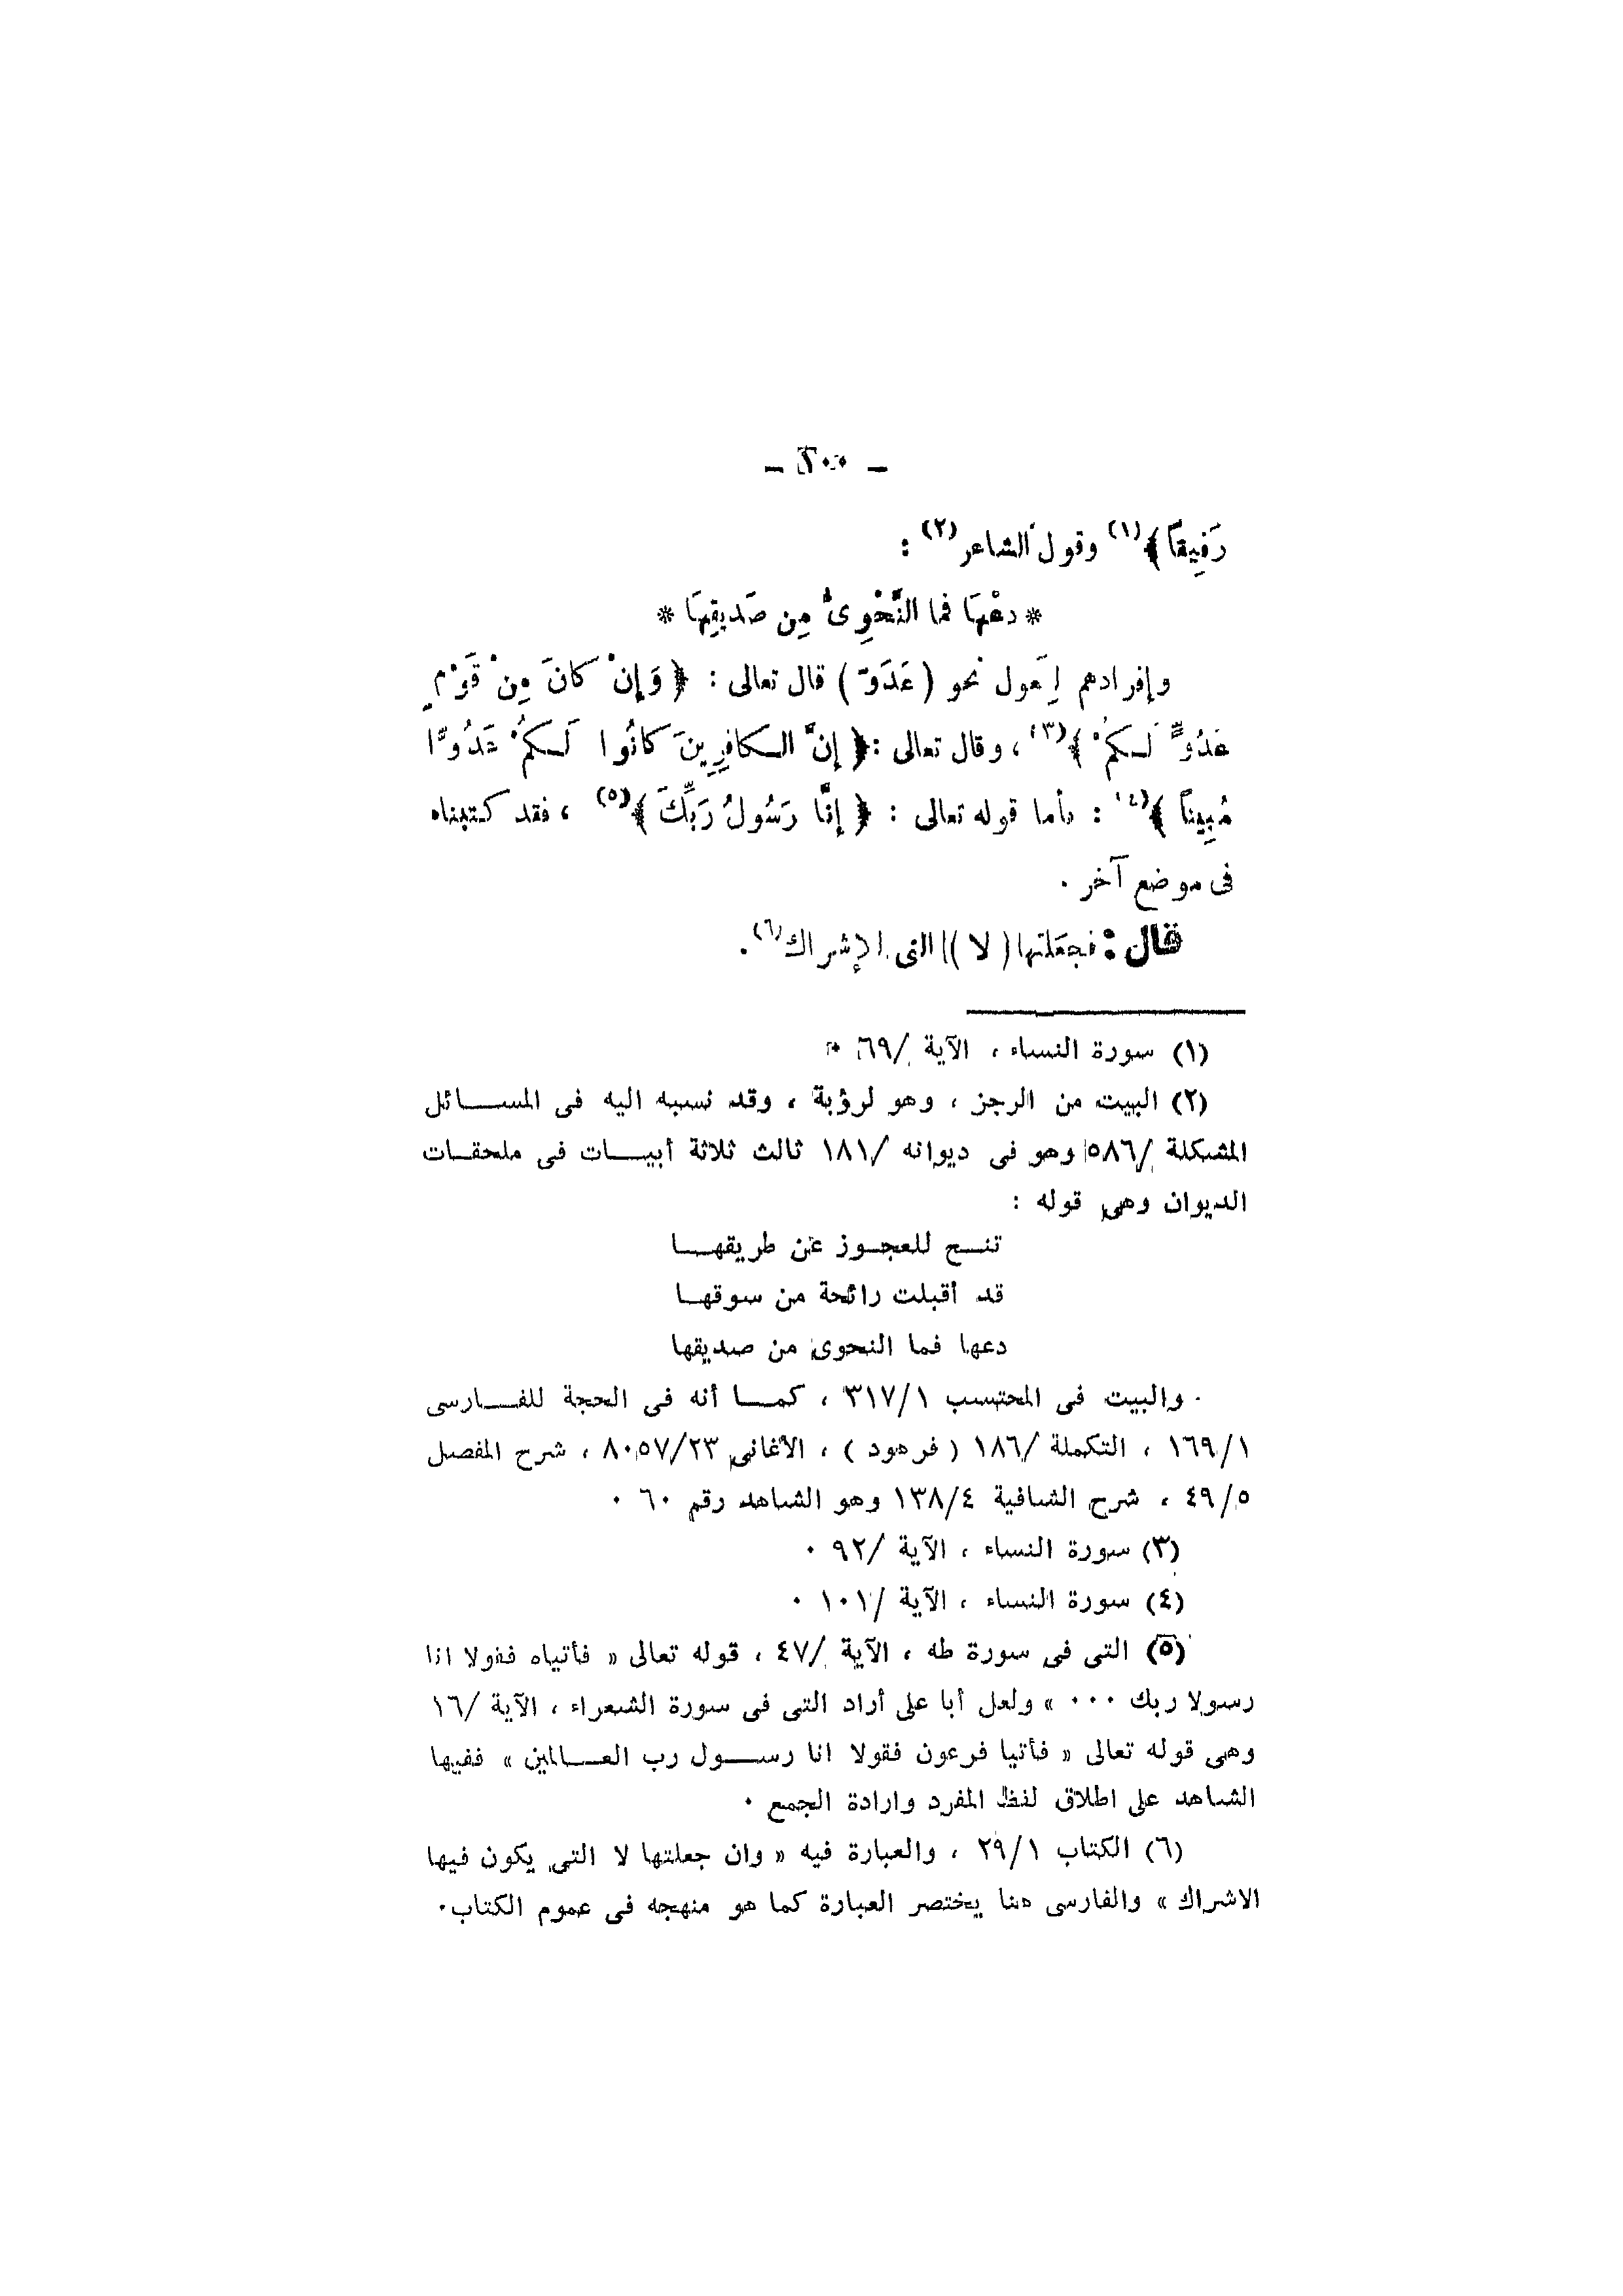 رَفِيقاً﴾(١) وقول الشاعر(٢) :
* دعْهَا فما النَّحْوِىُّ مِن صَديقِهَا *
وإفرادهم لِفَعول نحو ( عَدَوّ ) قال تعالى : ﴿ وَإِنْ كانَ مِنْ قَوْمٍ
عَدُوٍّ لَـكمْ ﴾(٣) ، وقال تعالى : ﴿ إنَّ الـكافِرِينَ كانُوا لَـكمْ عَدُوًّا
مُبِيناً ﴾(٤) : فأما قوله تعالى : ﴿ إنَّا رَسُولُ رَبِّكَ ﴾(٥) ، فقد كتبناه
فى موضع آخر .
قال : فجعَلتها ( لا ) التى الإشراك(٦) .
(١) سورة النساء ، الآية /٦٩ .
(٢) البيت من الرجز ، وهو لرؤبة ، وقد نسبه اليه فى المســائل
المشكلة /٥٨٦ وهو فى ديوانه /١٨١ ثالث ثلاثة أبيــات فى ملحقـات
الديوان وهى قوله :
تنــح للعجـوز عن طريقهــا
قد أقبلت رائحة من سوقهـا
دعها فما النحوى من صديقها
والبيت فى المحتسب ٣١٧/١ ، كمــا أنه فى الحجة للفــارسى
١٦٩/١ ، التكملة /١٨٦ ( فرهود ) ، الأغانى ٨٠،٥٧/٢٣ ، شرح المفصل
٤٩/٥ ، شرح الشافية ١٣٨/٤ وهو الشاهد رقم ٦٠ .
(٣) سورة النساء ، الآية /٩٢ .
(٤) سورة النساء ، الآية /١٠١ .
(٥) التى فى سورة طه ، الآية /٤٧ ، قوله تعالى « فأتياه فقولا انا
رسولا ربك ... » ولعل أبا على أراد التى فى سورة الشعراء ، الآية /١٦
وهى قوله تعالى « فأتيا فرعون فقولا انا رســول رب العــالمين » ففيها
الشاهد على اطلاق لفظ المفرد وارادة الجمع .
(٦) الكتاب ٢٩/١ ، والعبارة فيه « وان جعلتها لا التى يكون فيها
الاشراك » والفارسى هنا يختصر العبارة كما هو منهجه فى عموم الكتاب.